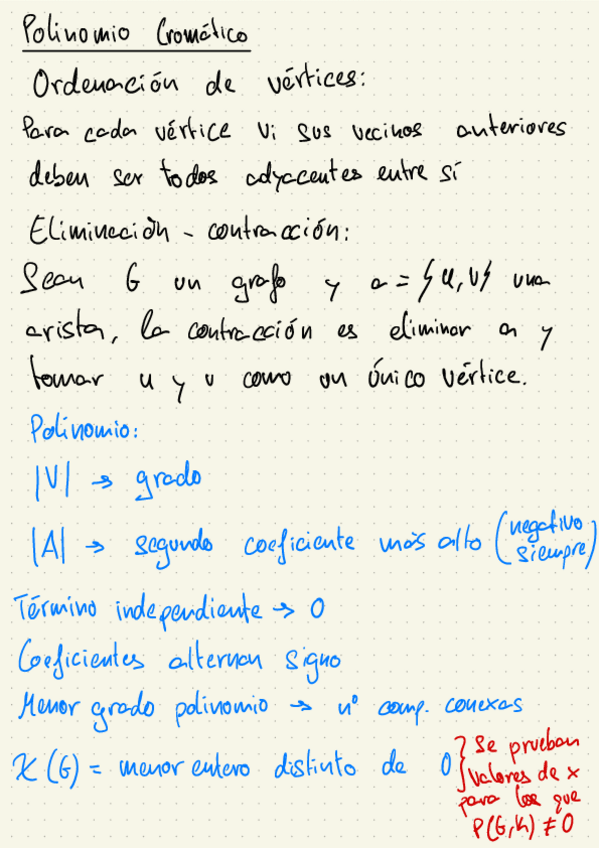 Polinomio Cromático
Ordenación de vértices:
Para cada vértice vi sus vecinos anteriores
deben ser todos adyacentes entre sí
Eliminación - contracción:
Sean G un grafo y a = {u,v} una
arista, la contracción es eliminar a y
tomar u y v como un único vértice.
Polinomio:
|V| → grado
|A| → segundo coeficiente más alto (negativo siempre)
Término independiente → 0
Coeficientes alternan signo
Menor grado polinomio → nº comp. conexas
X(G) = menor entero distinto de 0 } Se prueban
valores de x
para los que
P(G,k) ≠ 0